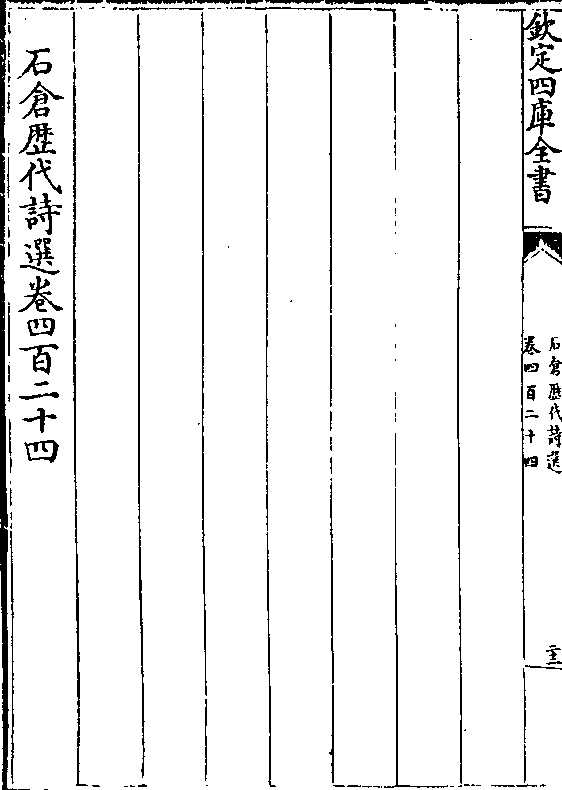 欽定四庫全書
石倉歴代詩選
卷四百二十四
石倉歴代詩選卷四百二十四